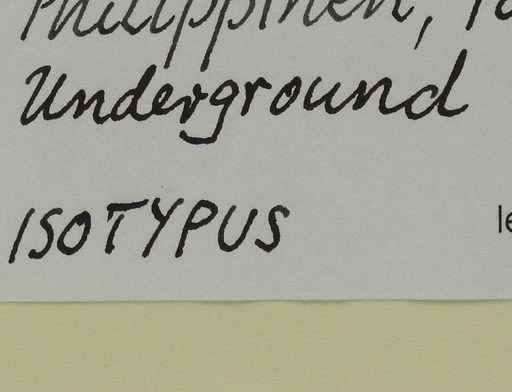 Philippinen,
Underground
ISOTYPUS